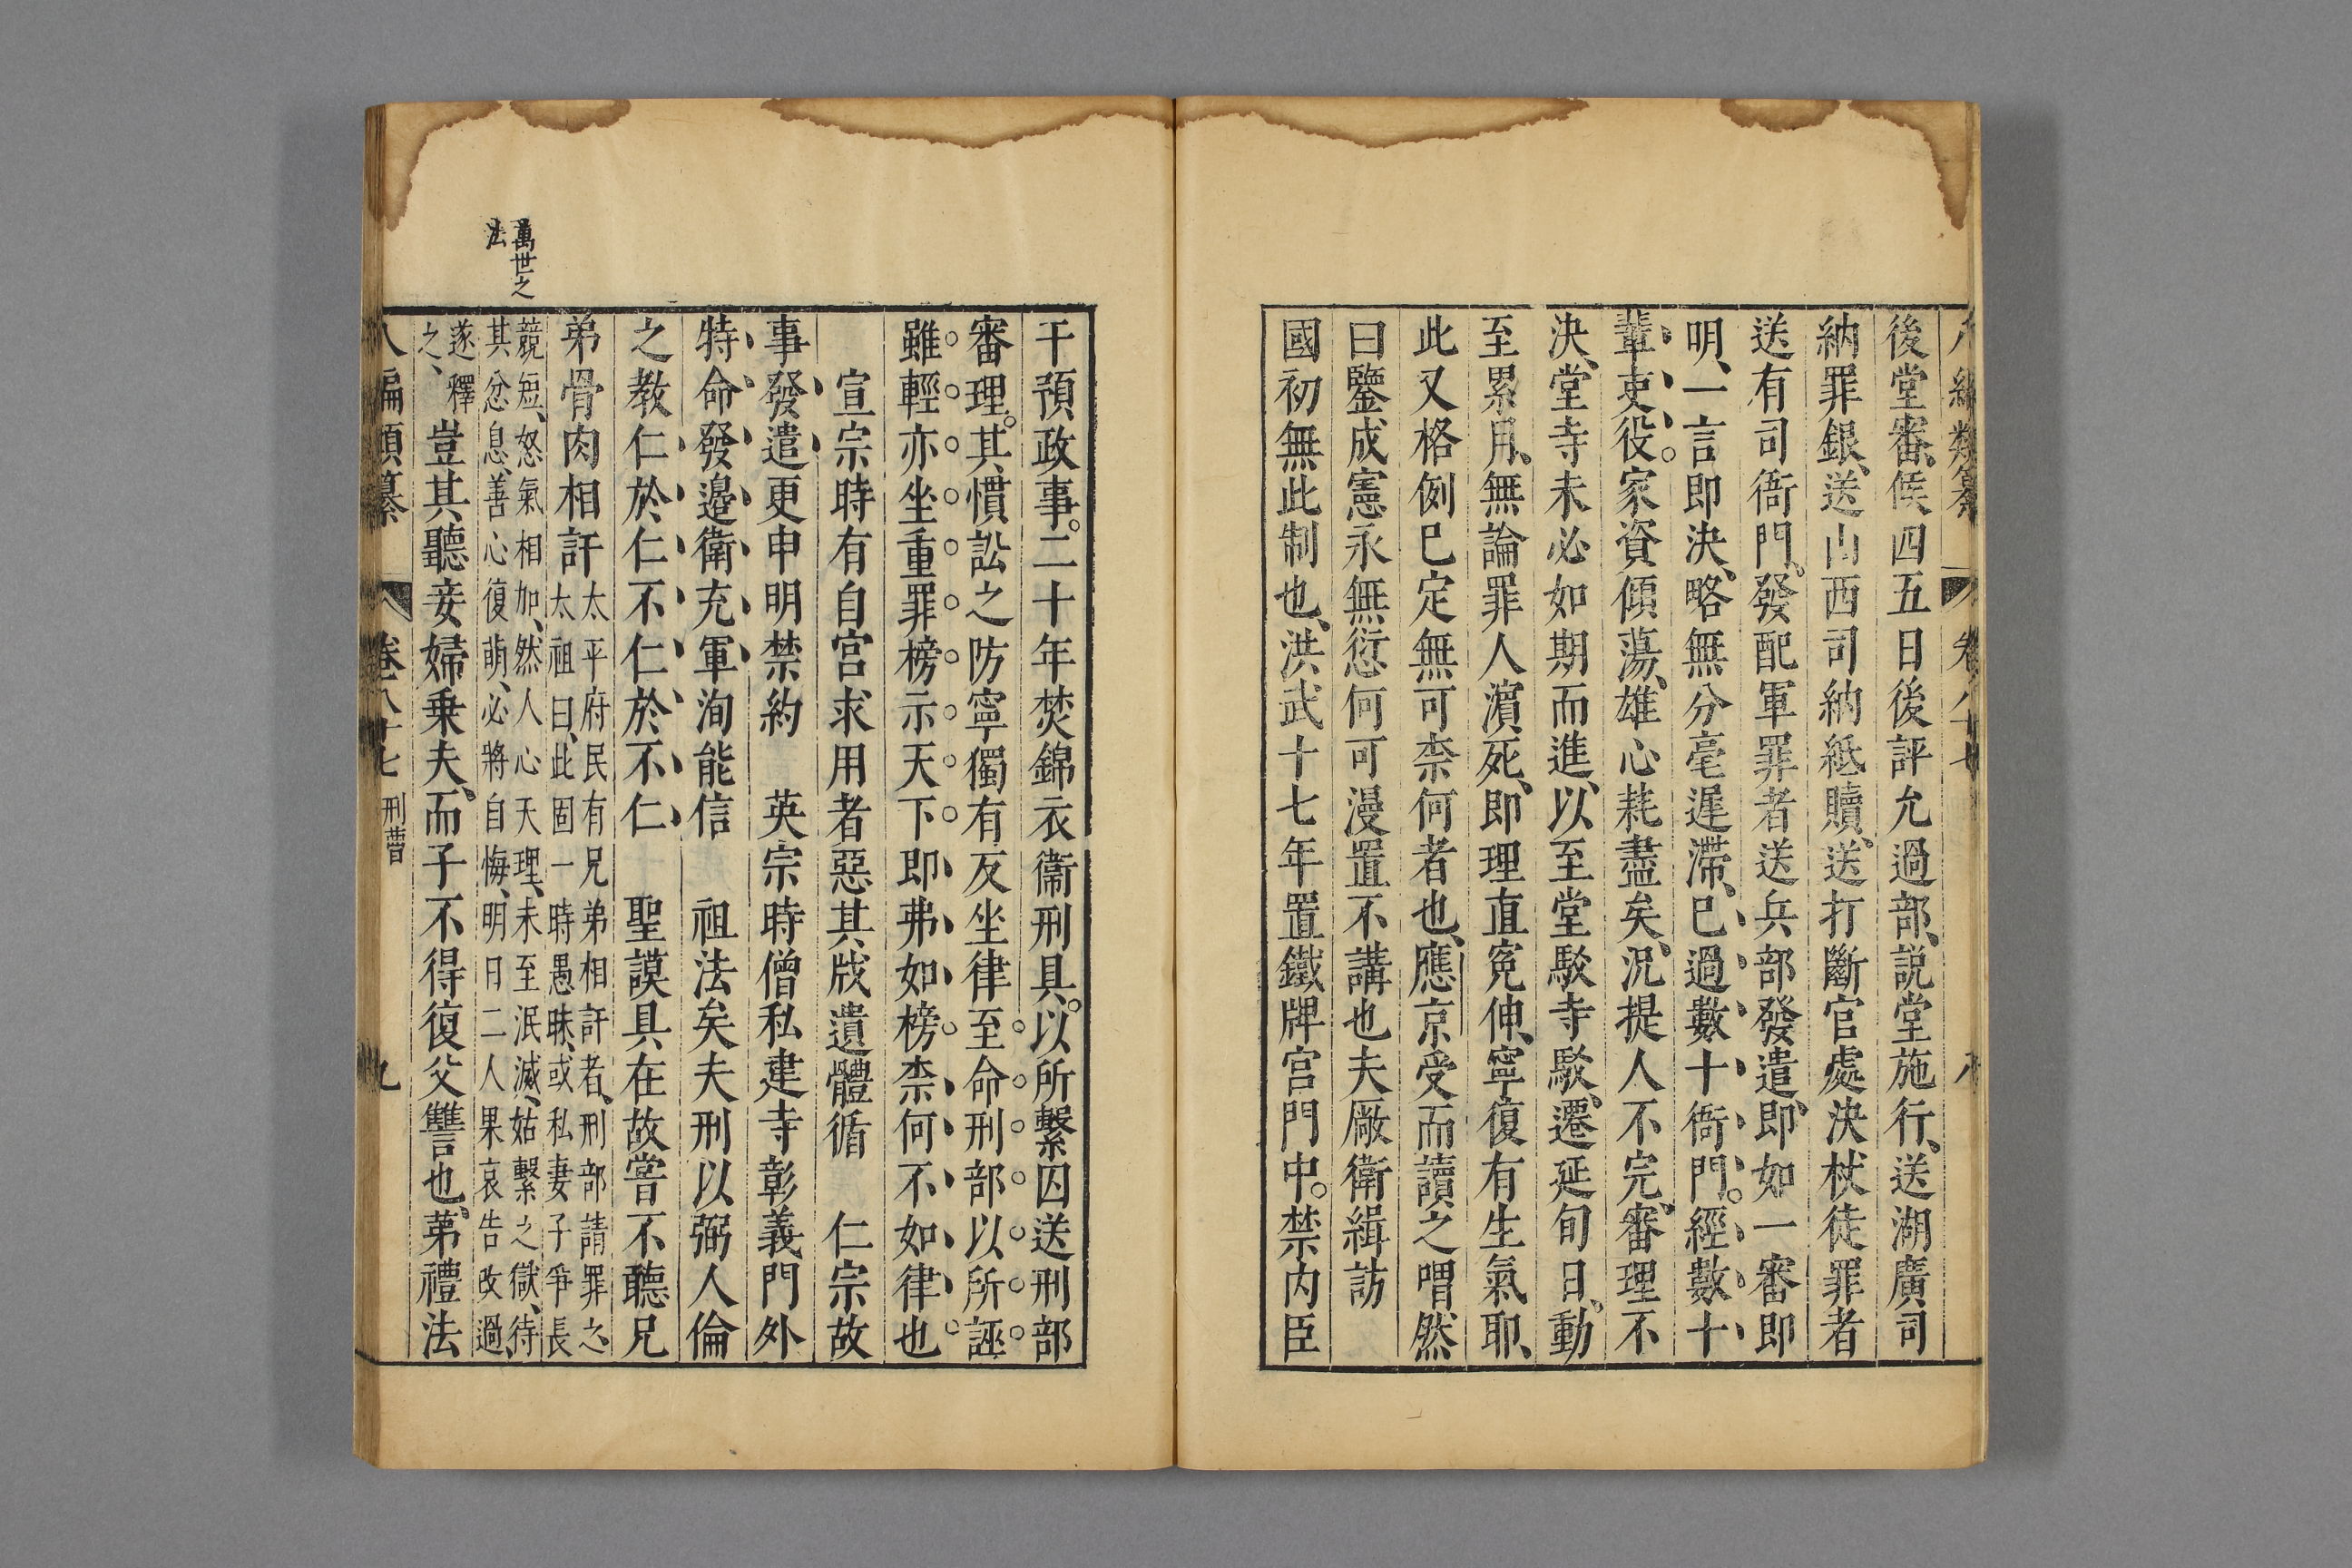 後堂審、候四五日後評允過部、説堂施行、送湖廣司
納罪銀、送山西司納紙贖、送打斷官處決杖徒罪者
送有司衙門。發配軍罪者送兵部發遣、即如一審即
明、一言即決、略無分毫遲滯、已過數十衙門。經數十
輩吏役。家資傾蕩、雄心耗盡矣、況提人不完、審理不
決、堂寺未必如期而進、以至堂駁寺駁、遷延旬日、動
至累月、無論罪人濵死、即理直寃伸、寧復有生氣耶、
此又格例已定無可柰何者也、應京受而讀之喟然
曰鑒成憲永無愆何可漫置不講也夫厰衛緝訪
國初無此制也、洪武十七年置鐵牌宮門中。禁内臣
干預政事。二十年焚錦衣衞刑具。以所繫囚送刑部
審理。其慣訟之防寧獨有反坐律至命刑部以所誣
雖輕亦坐重罪榜示天下即弗如榜柰何不如律也
宣宗時有自宮求用者惡其戕遺體循　仁宗故
事發遣更申明禁約　英宗時僧私建寺彰義門外
特命發邉衛充軍洵能信　祖法矣夫刑以弼人倫
之教仁於仁不仁於不仁　聖謨具在故嘗不聽兄
弟骨肉相訐太平府民有兄弟相訐者、刑部請罪之、
太祖曰、此固一時愚昧、或私妻子爭長
競短、怒氣相加、然人心天理、未至泯滅、姑繫之獄、待
其忿息、善心復萌、必將自悔、明日二人果哀告改過、
遂釋
之、豈其聽妾婦乗夫、而子不得復父讐也、苐禮法
萬世之
法
八編類纂　卷八十七　刑曹　九